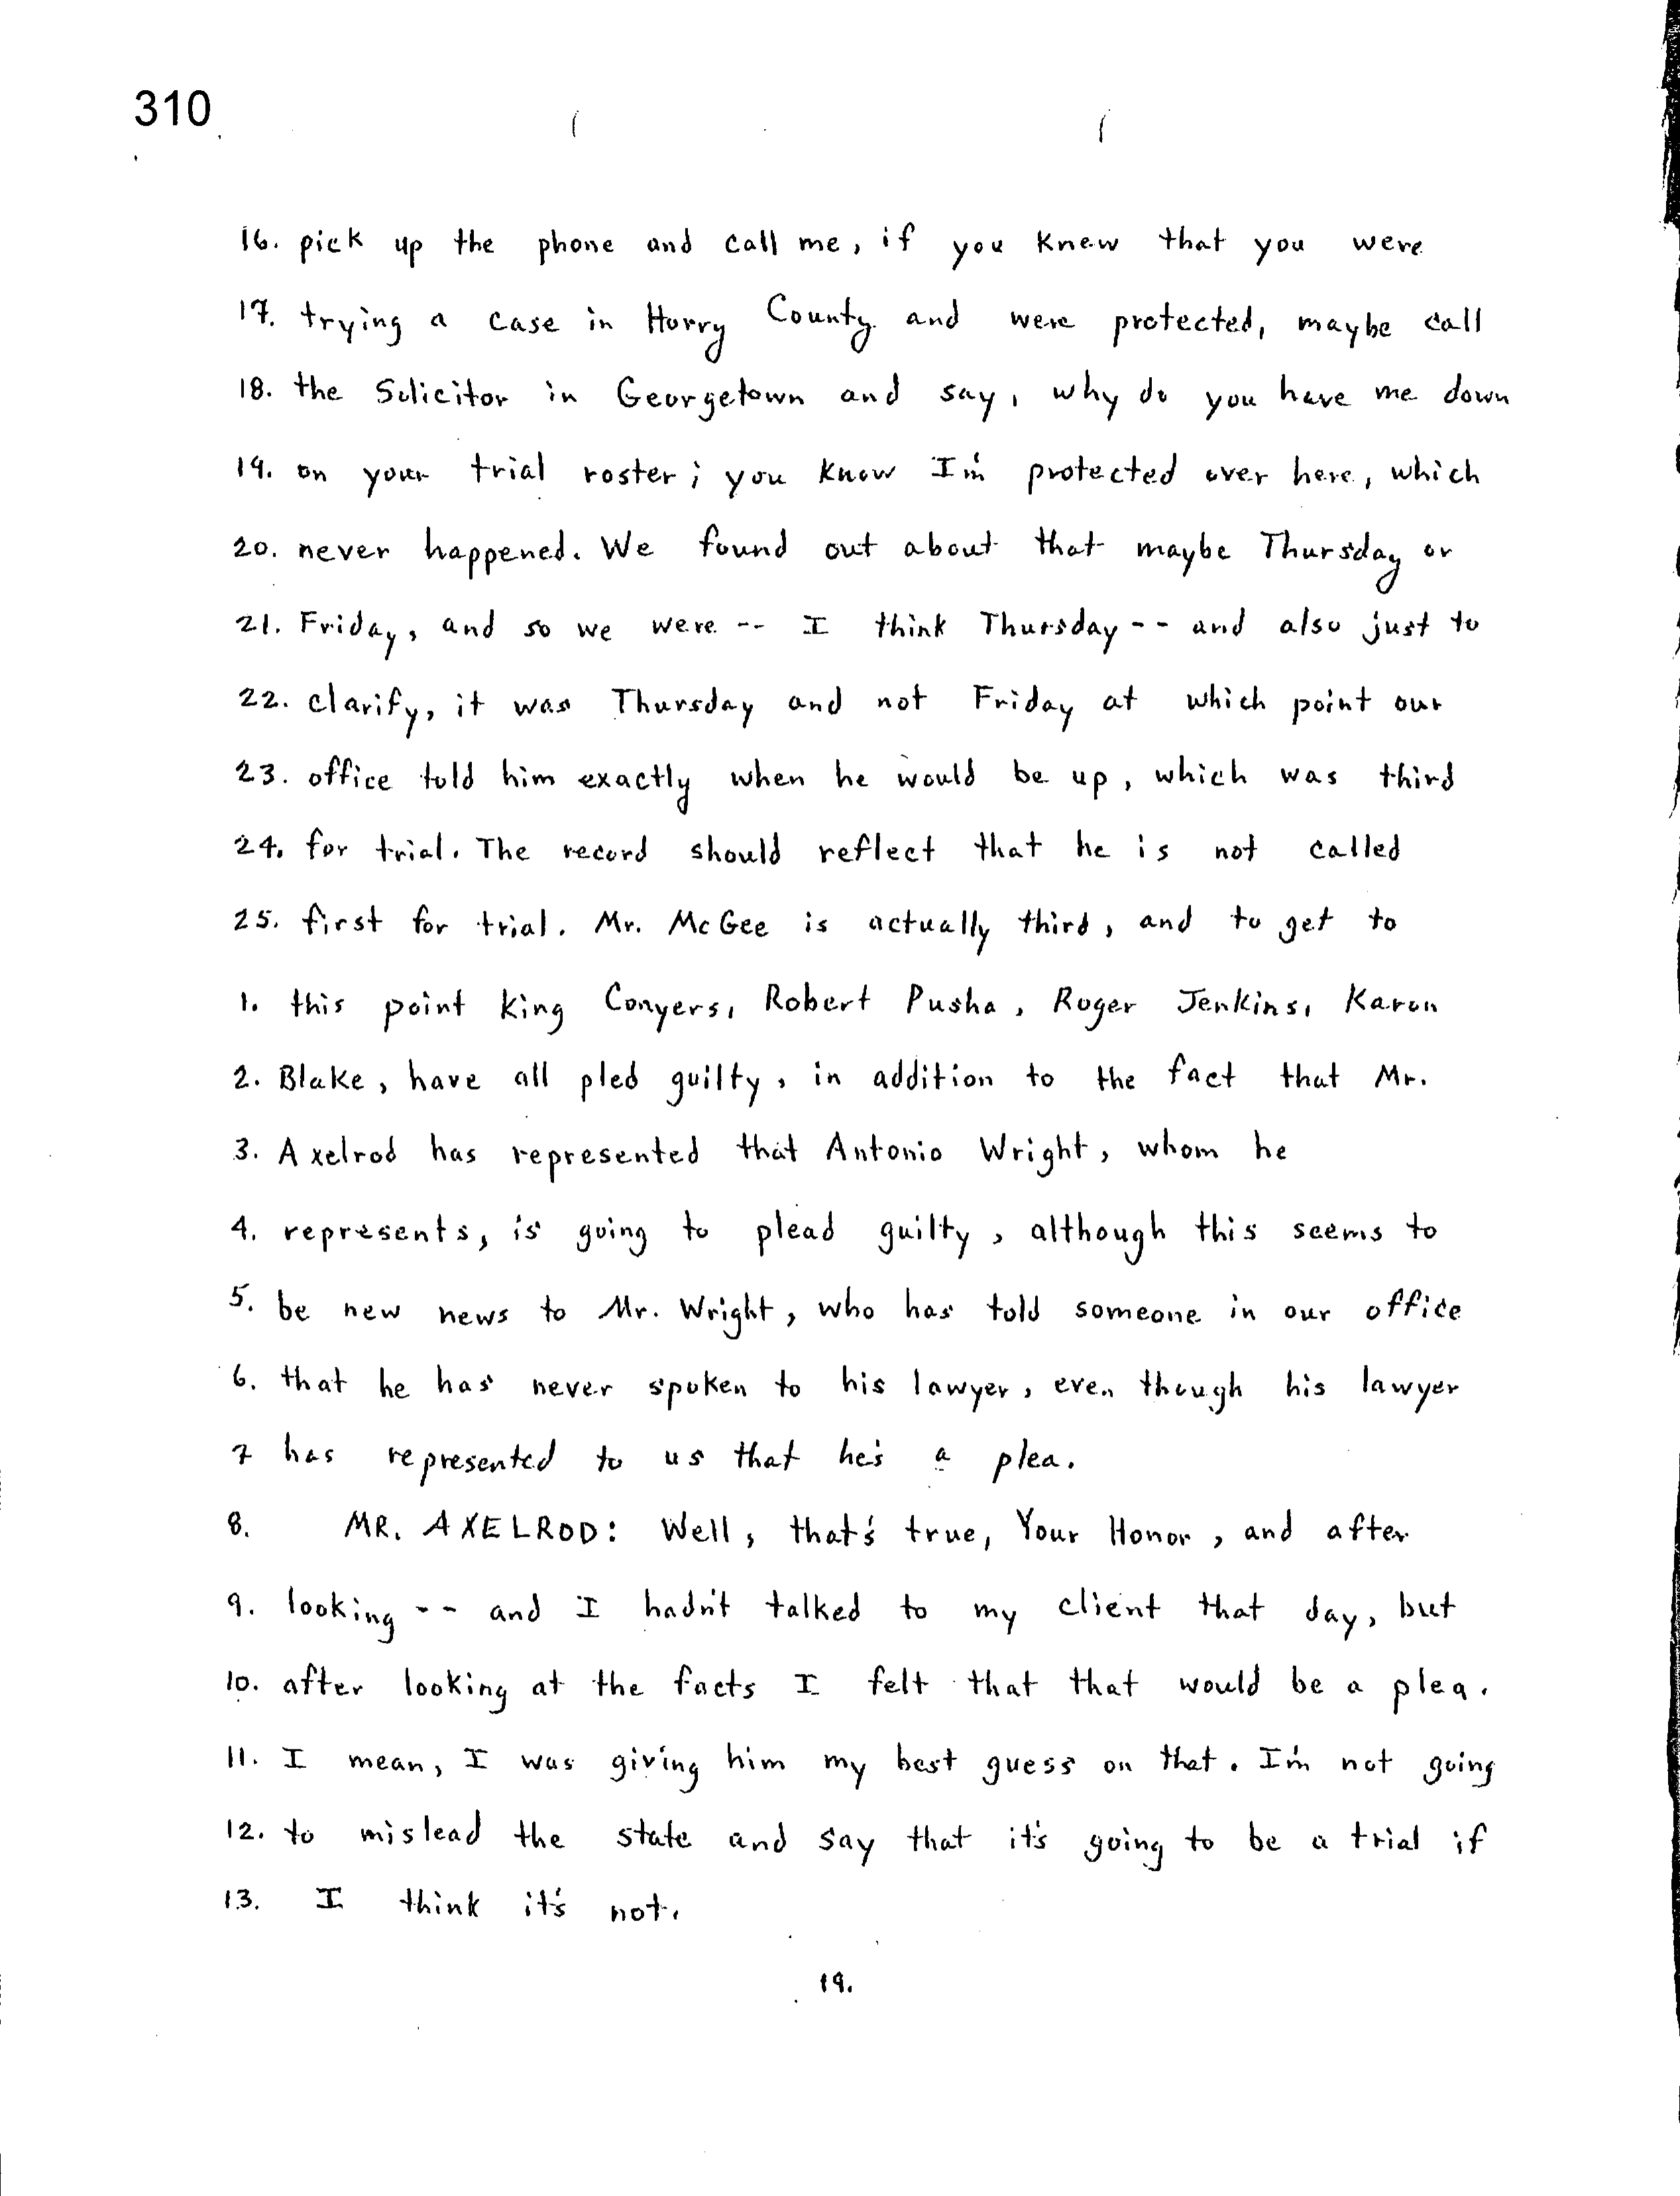 310
16. pick up the phone and call me, if you knew that you were
17. trying a case in Horry County and were protected, maybe call
18. the Solicitor in Georgetown and say, why do you have me down
19. on your trial roster; you know I'm protected over here, which
20. never happened. We found out about that maybe Thursday or
21. Friday, and so we were -- I think Thursday -- and also just to
22. clarify, it was Thursday and not Friday at which point our
23. office told him exactly when he would be up, which was third
24. for trial. The record should reflect that he is not called
25. first for trial. Mr. McGee is actually third, and to get to
1. this point King Conyers, Robert Pusha, Roger Jenkins, Karon
2. Blake, have all pled guilty, in addition to the fact that Mr.
3. Axelrod has represented that Antonio Wright, whom he
4. represents, is going to plead guilty, although this seems to
5. be new news to Mr. Wright, who has told someone in our office
6. that he has never spoken to his lawyer, even though his lawyer
7 has represented to us that he's a plea.
8. MR. AXELROD: Well, that's true, Your Honor, and after
9. looking -- and I hadn't talked to my client that day, but
10. after looking at the facts I felt that that would be a plea.
11. I mean, I was giving him my best guess on that. I'm not going
12. to mislead the state and say that it's going to be a trial if
13. I think it's not.
19.